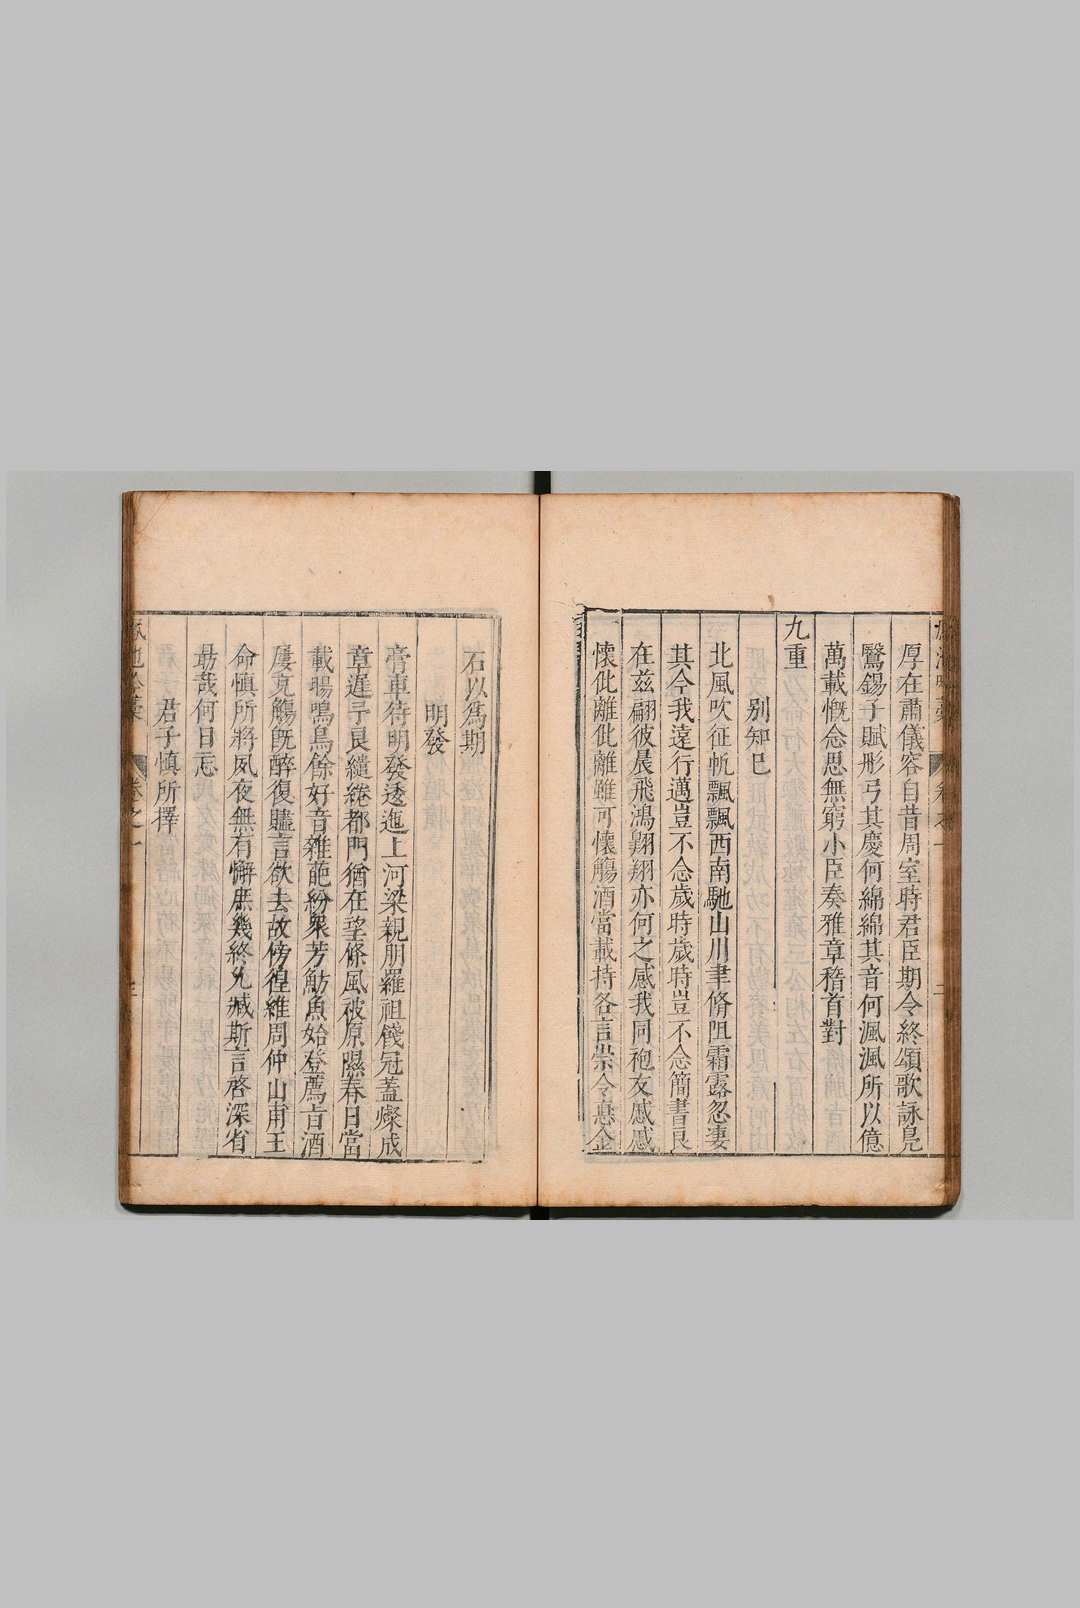 厚在肅儀容自昔周室時君臣期令終頌歌詠鳧
鷖錫予賦彤弓其慶何綿綿其音何渢渢所以億
萬載慨念思無窮小臣奏雅章稽首對
九重
別知己
北風吹征帆飄飄西南馳山川聿脩阻霜露忽凄
其今我遠行邁豈不念歲時歲時豈不念簡書良
在茲翩彼晨飛鴻翱翔亦何之感我同袍友慼慼
懷仳離仳離雖可懷觴酒當載持各言崇令息企
石以為期
明發
膏車待明發透迤上河梁親朋羅祖餞冠蓋燦成
章遲予良繾綣都門猶在望條風被原隰春日當
載暘鳴鳥餘好音雜葩紛眾芳魴魚始登薦旨酒
屢克觴既醉復贐言欲去故徬徨維周仲山甫王
命慎所將夙夜無有懈庶幾終允臧斯言啓深省
勗哉何日忘
君子慎所擇
卷之一